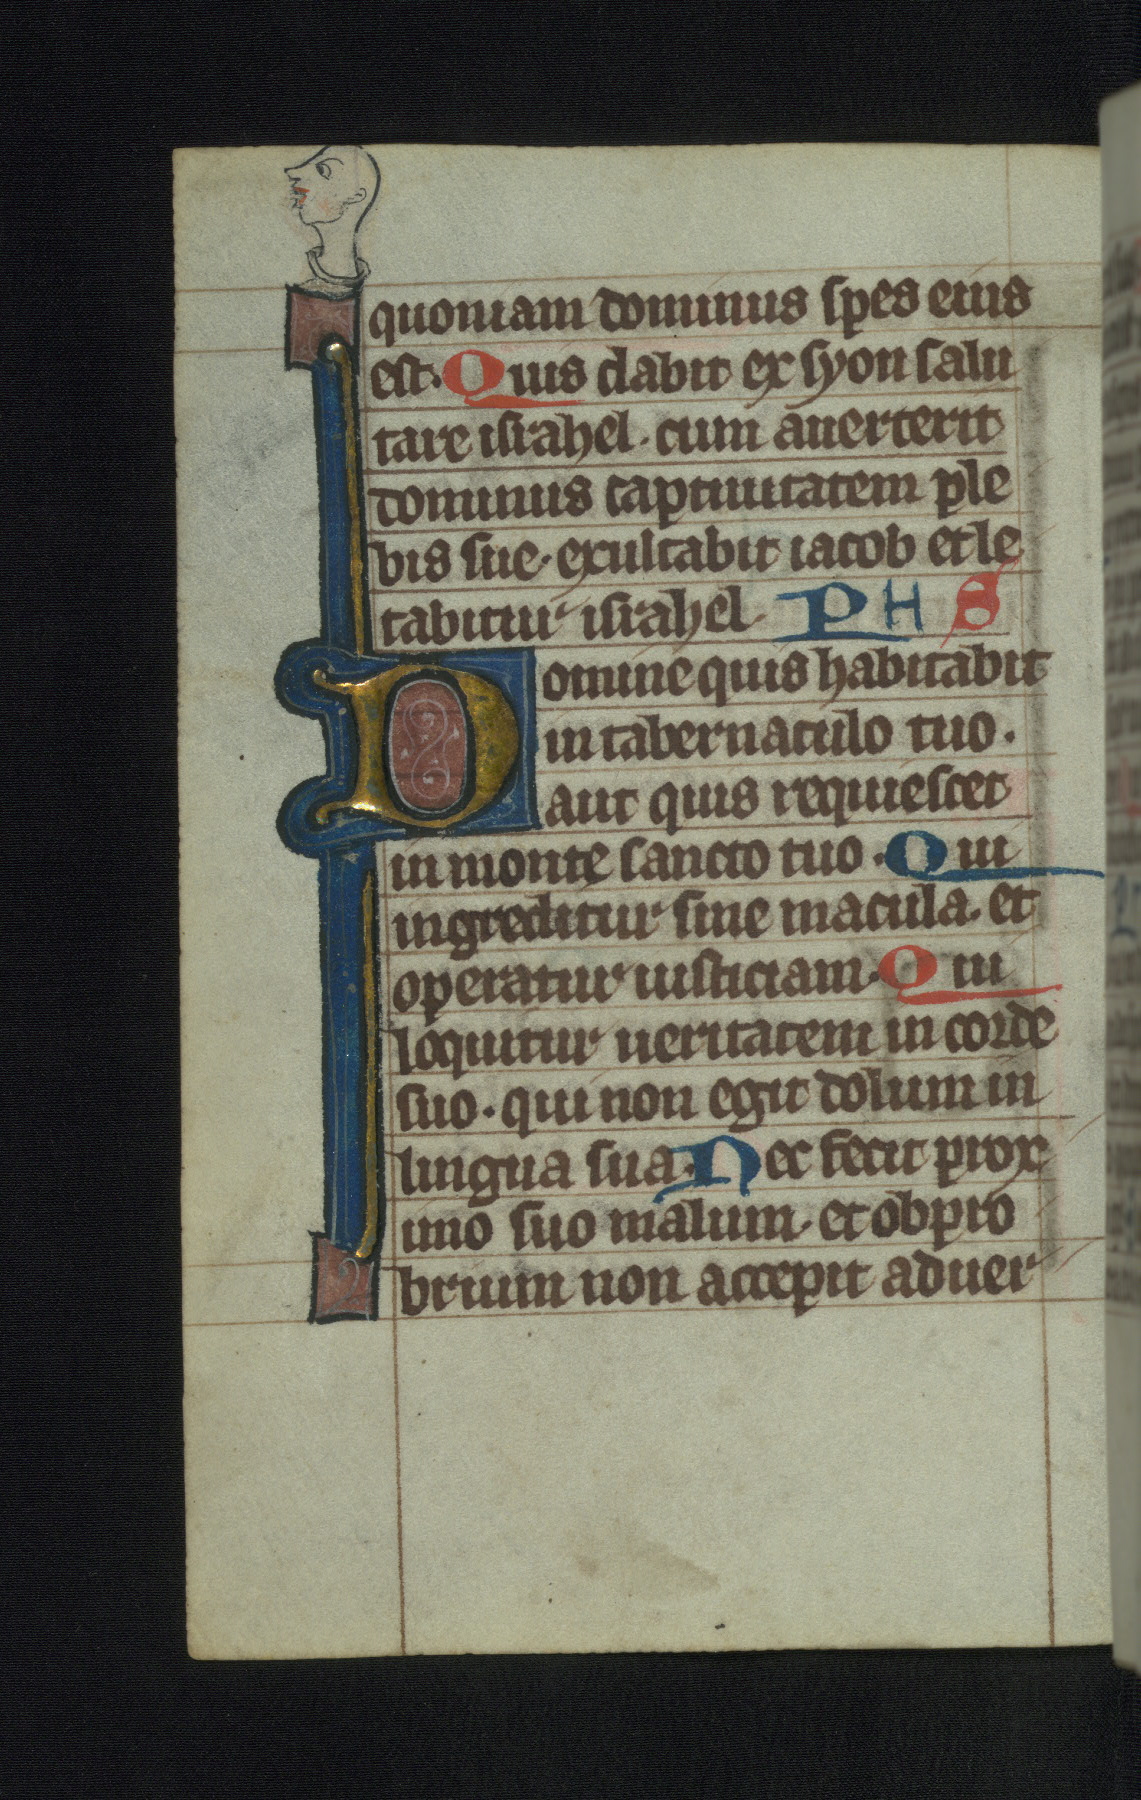 quoniam dominus spes eius
est. Quis dabit ex syon salu
tare israhel. cum auerterit
dominus captiuitatem ple
bis sue. exultabit iacob et le
tabitur israhel. P H S
Domine quis habitabit
in tabernaculo tuo.
aut quis requiescet
in monte sancto tuo. Qui
ingreditur sine macula. et
operatur iusticiam. Qui
loquitur ueritatem in corde
suo. qui non egit dolum in
lingua sua. Nec fecit prox
imo suo malum. et obpro
brium non accepit aduer